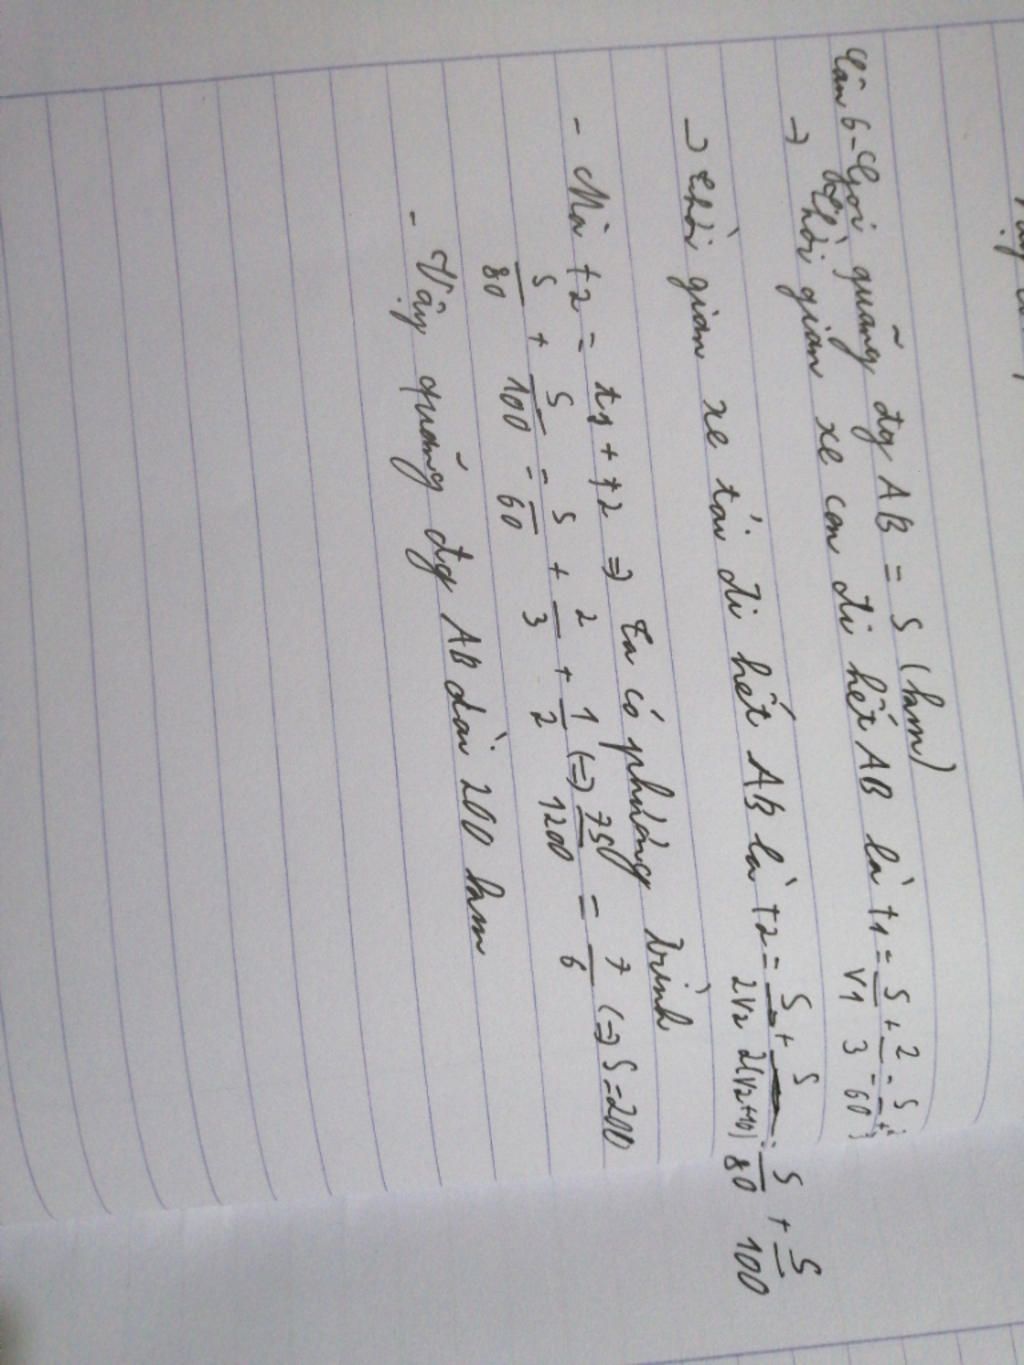 Câu 6 - Gọi quãng đg AB = S (km)
→ Thời gian xe con đi hết AB là t1 = S/V1 + 2/3 = S/60 +
→ thời gian xe tải đi hết AB là t2 = S/2V2 + S/2(V2+10) = S/80 + S/100
- Mà t2 = t1 + t2 => Ta có phương trình
S/80 + S/100 = S/60 + 2/3 + 1/2 (=) 7S/1200 = 7/6 (=) S=200
- Vậy quãng đg AB dài 200 km